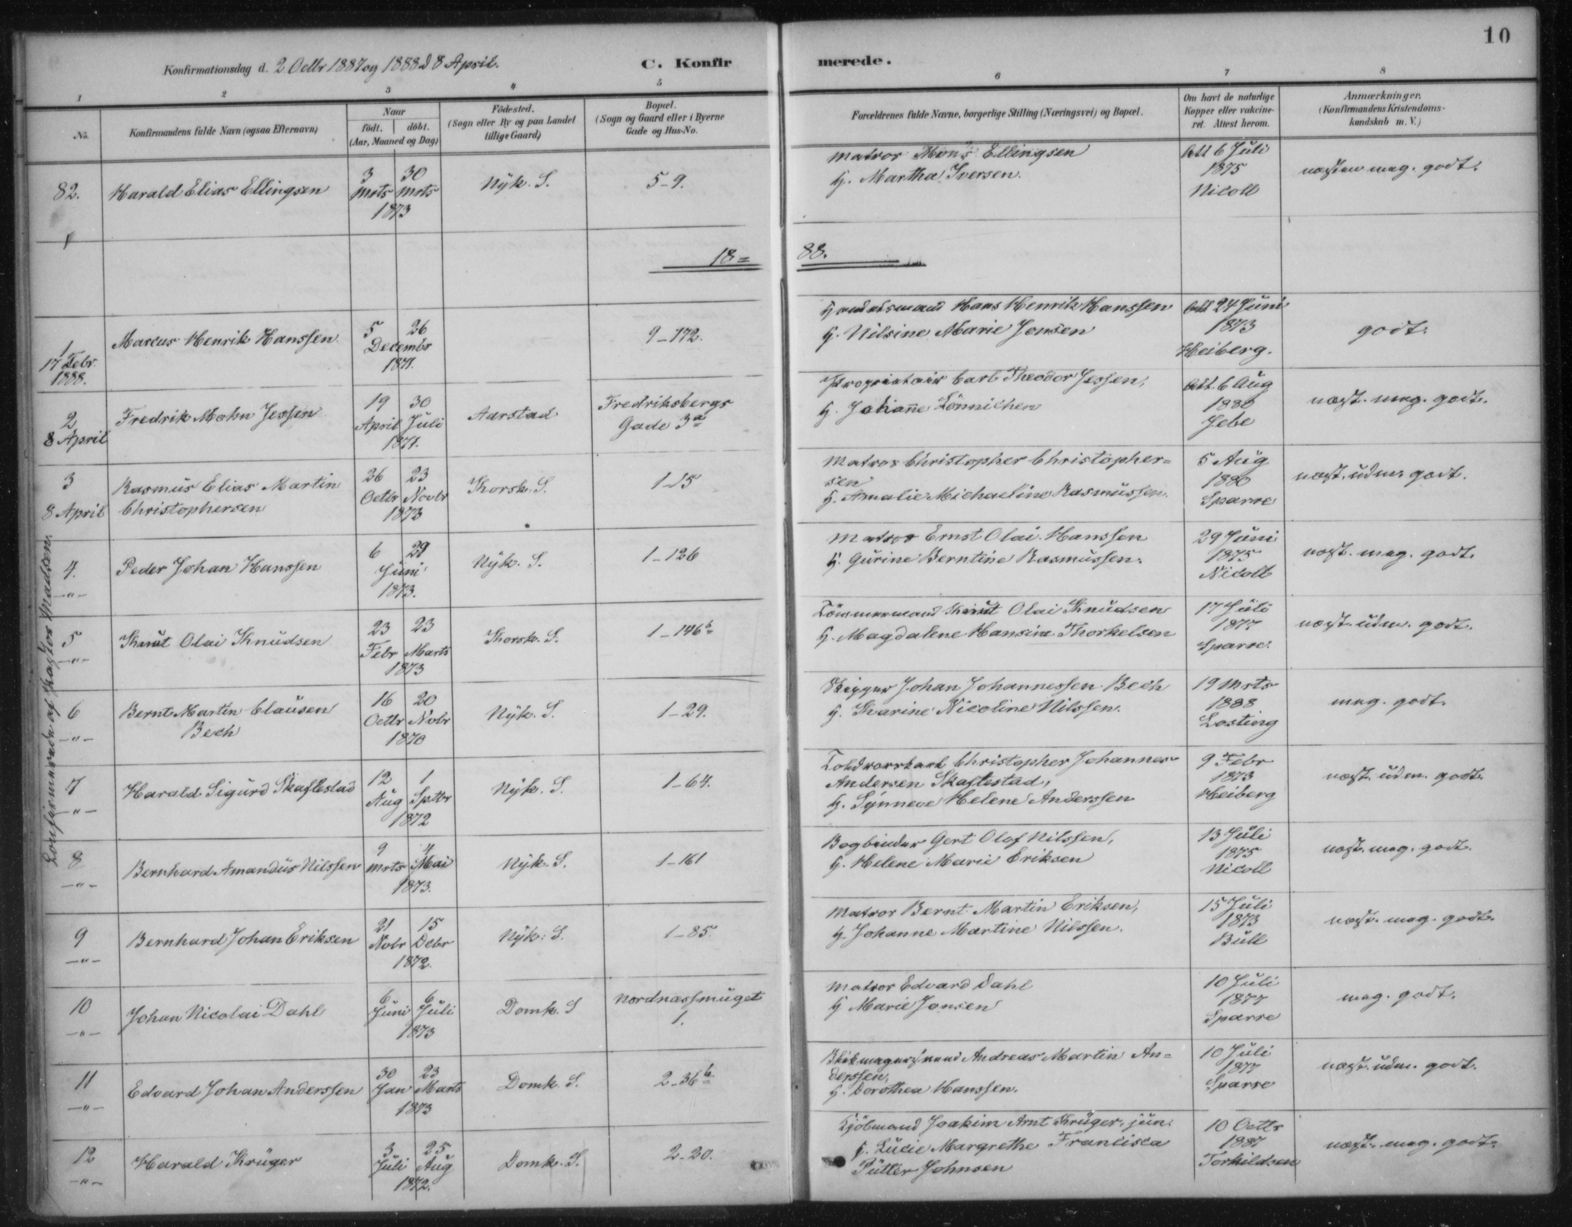 10
Konfirmationsdag d. 2 Octbr 1887 og 1888 d 8 April.
C. Konfirmerede.
1 2 3 4 5 6 7 8
No.
Konfirmandens fulde Navn (ogsaa Efternavn)
Naar
født. døbt.
(Aar, Maaned og Dag)
Födested.
(Sogn eller By og paa Landet
tillige Gaard)
Bopæl.
(Sogn og Gaard eller i Byerne
Gade og Hus-No.
Forældrenes fulde Navne, borgerlige Stilling (Næringsvei) og Bopæl.
Om havt de naturlige
Kopper eller vakcineret.
Attest herom.
Anmærkninger.
(Konfirmandens Kristendomskundskab
m. V.)
82.
Harald Elias Ellingsen
3 30
Mrts Mrts
1873
Nÿk. S.
5-9.
Matros Mons Ellingsen
H. Martha Iversen.
Att 6 Juli
1875
Nicoll
næsten meg. godt.
18=88.
1
17 Febr.
1888.
Marcus Henrik Hanssen
5 26
Decembr
1871.
9-172.
Handelsmand Hans Henrik Hanssen
H. Nilsine Marie Jensen
Att 24 Juni
1873
Heiberg.
godt.
2
8 April
Fredrik Mohn Jessen
19 30
April Juli
1871.
Aarstad
Fredriksbergs
Gade 3a
Proprietair Carl Theodor Jessen,
H. Johanne Lönnichen
Att. 6 Aug
1880
Jebe
næst. meg. godt.
3
8 April
Rasmus Elias Martin
Christophersen
26 23
Octbr Novbr
1873
Korsk. S.
1-15
Matros Christopher Christopher=
sen
H. Amalie Michaeline Rasmussen.
5 Aug
1880
Sparre
næst. udm. godt.
Confirmerede af Pastor Madsen.
4.
-"-
Peder Johan Hanssen
6 29
Juni
1873.
Nÿk. S.
1-126
Matros Ernst Olai Hanssen
H. Gurine Berntine Rasmussen.
29 Juni
1875
Nicoll
næst. meg. godt.
5
-"-
Knut Olai Knudsen
23 23
Febr Marts
1873
Korsk. S.
1-146b
Tömmermand Knut Olai Knudsen
H. Magdalene Hansine Thorkelsen
17 Juli
1877
Sparre.
næst. udm. godt.
6
-"-
Bernt Martin Clausen
Bech
16 20
Octbr Novbr
1870
Nÿk. S.
1-29.
Skipper Johan Johannessen Bech
H. Karine Nicoline Nilssen.
19 Mrts
1888
Losting
meg. godt.
7
-"-
Harald Sigurd Skaftestad
12 1
Aug Sptbr
1872
Nÿk. S.
1-64.
Toldroerskarl Christopher Johannes
Andersen Skaftestad,
H. Synneve Helene Anderssen
9 Febr
1873
Heiberg
næst. udm. godt.
8
-"-
Bernhard Amandus Nilssen
9 4
Mrts Mai
1873.
Nÿk. S.
1-161
Bogbinder Gert Olaf Nilssen,
H. Helene Marie Eriksen
13 Juli
1875
Nicoll
næst. meg. godt.
9
-"-
Bernhard Johan Eriksen
21 15
Novbr Debr
1872.
Nÿk. S.
1-85.
Matros Bernt Martin Eriksen,
H. Johanne Martine Nilssen.
15 Juli
1873
Bull
næst. meg. godt.
10
-"-
Johan Nicolai Dahl
6 6
Juni Juli
1873
Domk. S
Nordnæssmuget
1.
Matros Edvard Dahl
H Marie Jansen
10 Juli
1877
Sparre
meg. godt.
11
-"-
Edvard Johan Anderssen
30 23
Jan Marts
1873
Domk. S.
2-36b
Blikmagersvend Andreas Martin An=
derssen,
H. Dorothea Hanssen.
10 Juli
1877
Sparre
næst. udm. godt.
12
-"-
Harald Krüger
3 25
Juli Aug
1872.
Domk. S.
2-20.
Kjöbmand Joakim Arnt Krüger, jun.
H. Lucie Margrethe Francisca
Pütter Johnsen
10 Octbr
1887
Torkildsen
næst. meg. godt.